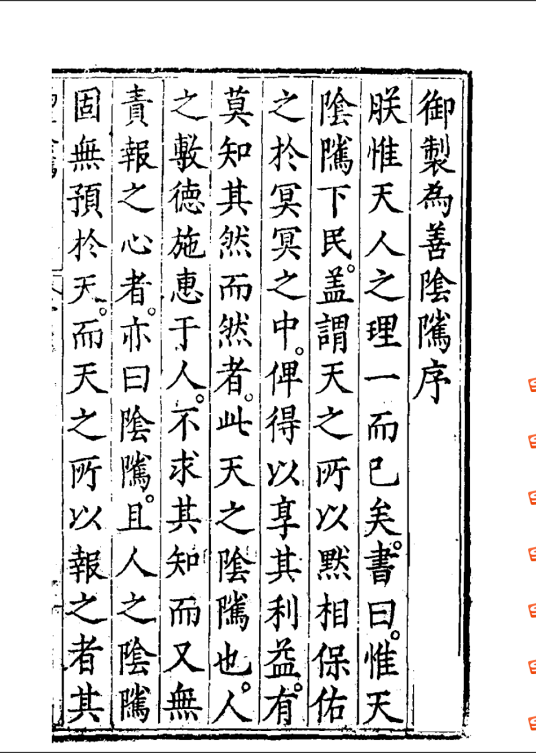 御製為善陰隲序
朕惟天人之理一而已矣。書曰。惟天
陰隲下民。盖謂天之所以黙相保佑
之於冥冥之中。俾得以享其利益。有
莫知其然而然者。此天之陰隲也。人
之敷德施惠于人。不求其知而又無
責報之心者。亦曰陰隲。且人之陰隲
固無預於天。而天之所以報之者其